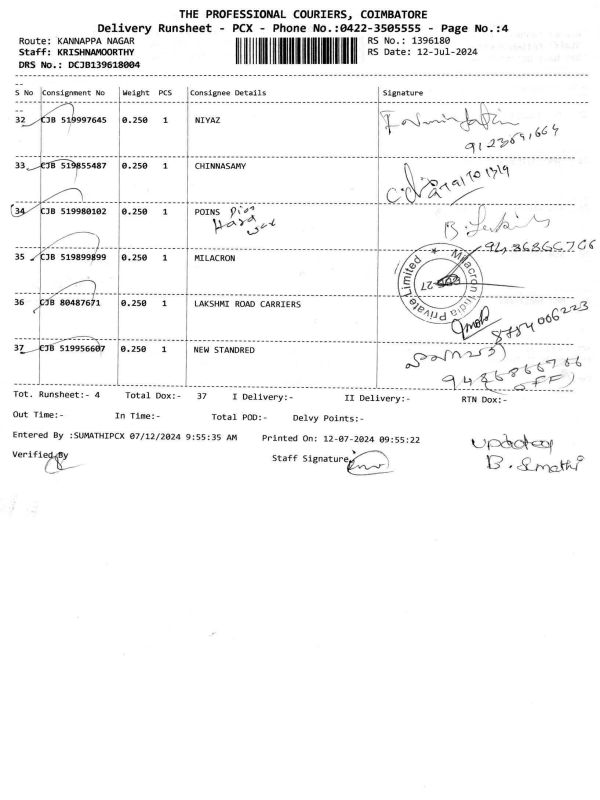 THE PROFESSIONAL COURIERS, COIMBATORE
Delivery Runsheet - PCX - Phone No.:0422-3505555 - Page No.:4
Route: KANNAPPA NAGAR RS No.: 1396180
Staff: KRISHNAMOORTHY RS Date: 12-Jul-2024
DRS No.: DCJB139618004
S No Consignment No Weight PCS Consignee Details Signature
32 CJB 519997645 0.250 1 NIYAZ
33 CJB 519855487 0.250 1 CHINNASAMY
34 CJB 519980102 0.250 1 POINS
B.
9486866766
35 CJB 519899899 0.250 1 MILACRON
Milacron India Private Limited
36 CJB 80487671 0.250 1 LAKSHMI ROAD CARRIERS
8754006223
37 CJB 519956607 0.250 1 NEW STANDRED
9486866766
Tot. Runsheet:- 4 Total Dox:- 37 I Delivery:- II Delivery:- RTN Dox:-
Out Time:- In Time:- Total POD:- Delvy Points:-
Entered By :SUMATHIPCX 07/12/2024 9:55:35 AM Printed On: 12-07-2024 09:55:22
Verified By Staff Signature
B. Sumathi